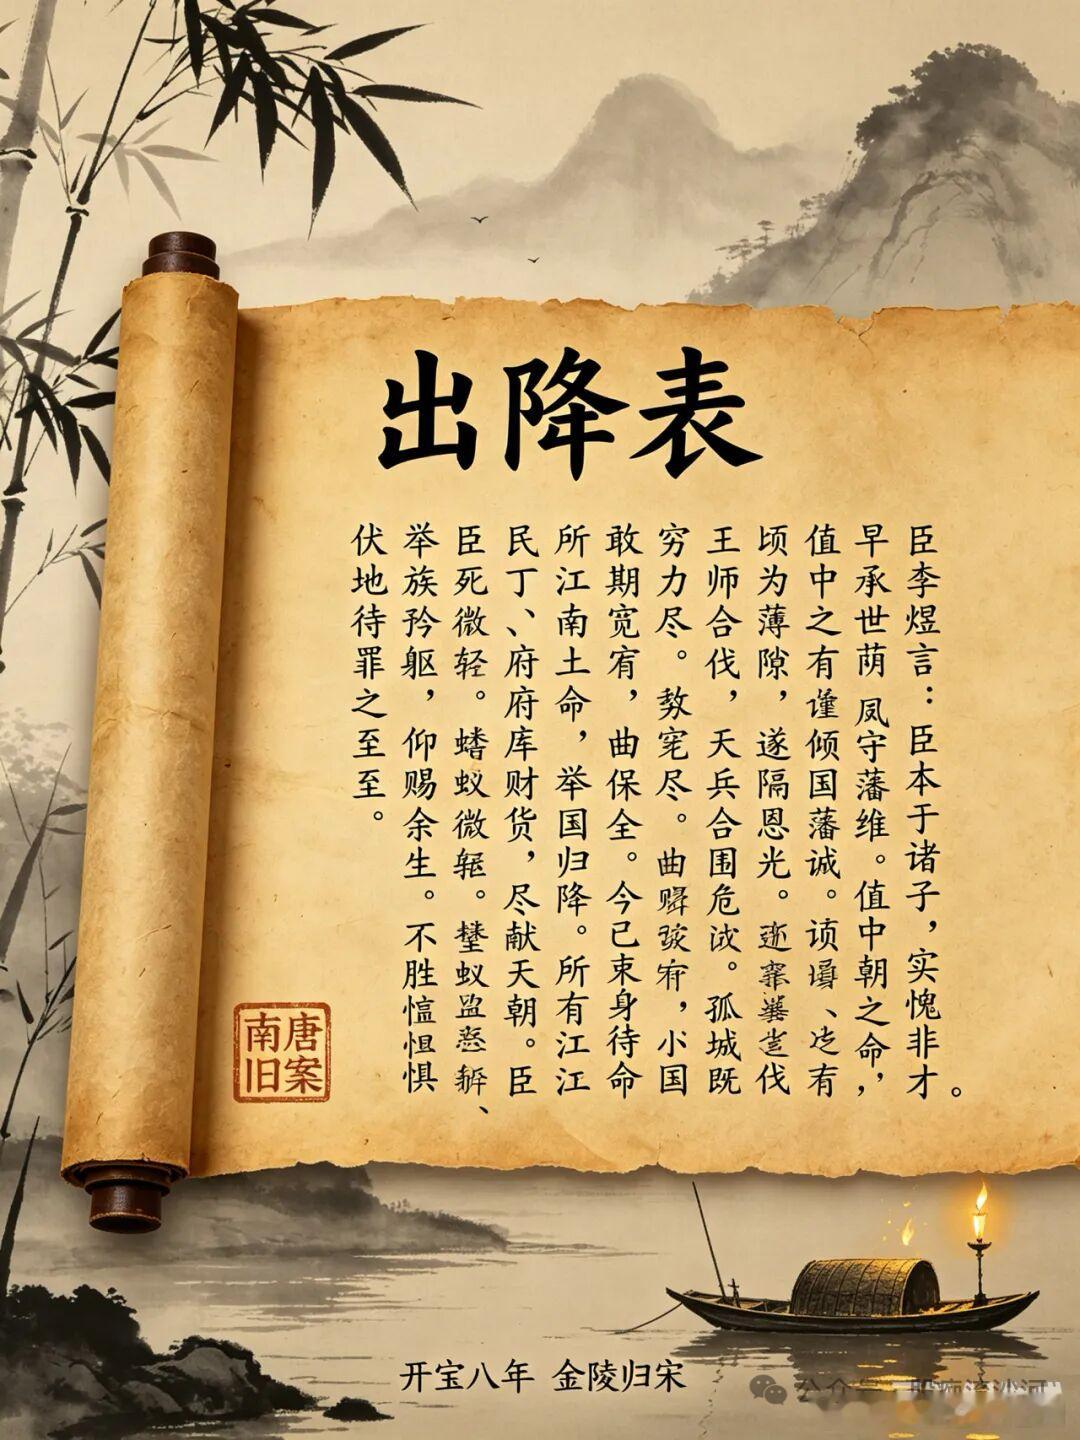 出降表
臣李煜言：臣本于诸子，实愧非才。
早承世荫 凤守藩维。值中朝之命，
值中之有谨倾国藩诚。颂、迄有
顷为薄隙，遂隔恩光。伐
王师合伐，天兵合围危。孤城既
穷力尽。尽。曲，小国
敢期宽宥，曲保全。今已束身待命
所江南土命，举国归降。所有江江
民丁、府府库财货，尽献天朝。臣
臣死微轻。蚁微。蚁、
举族矜躯，仰赐余生。不胜惧
伏地待罪之至至。
南唐
旧案
开宝八年 金陵归宋
公众号